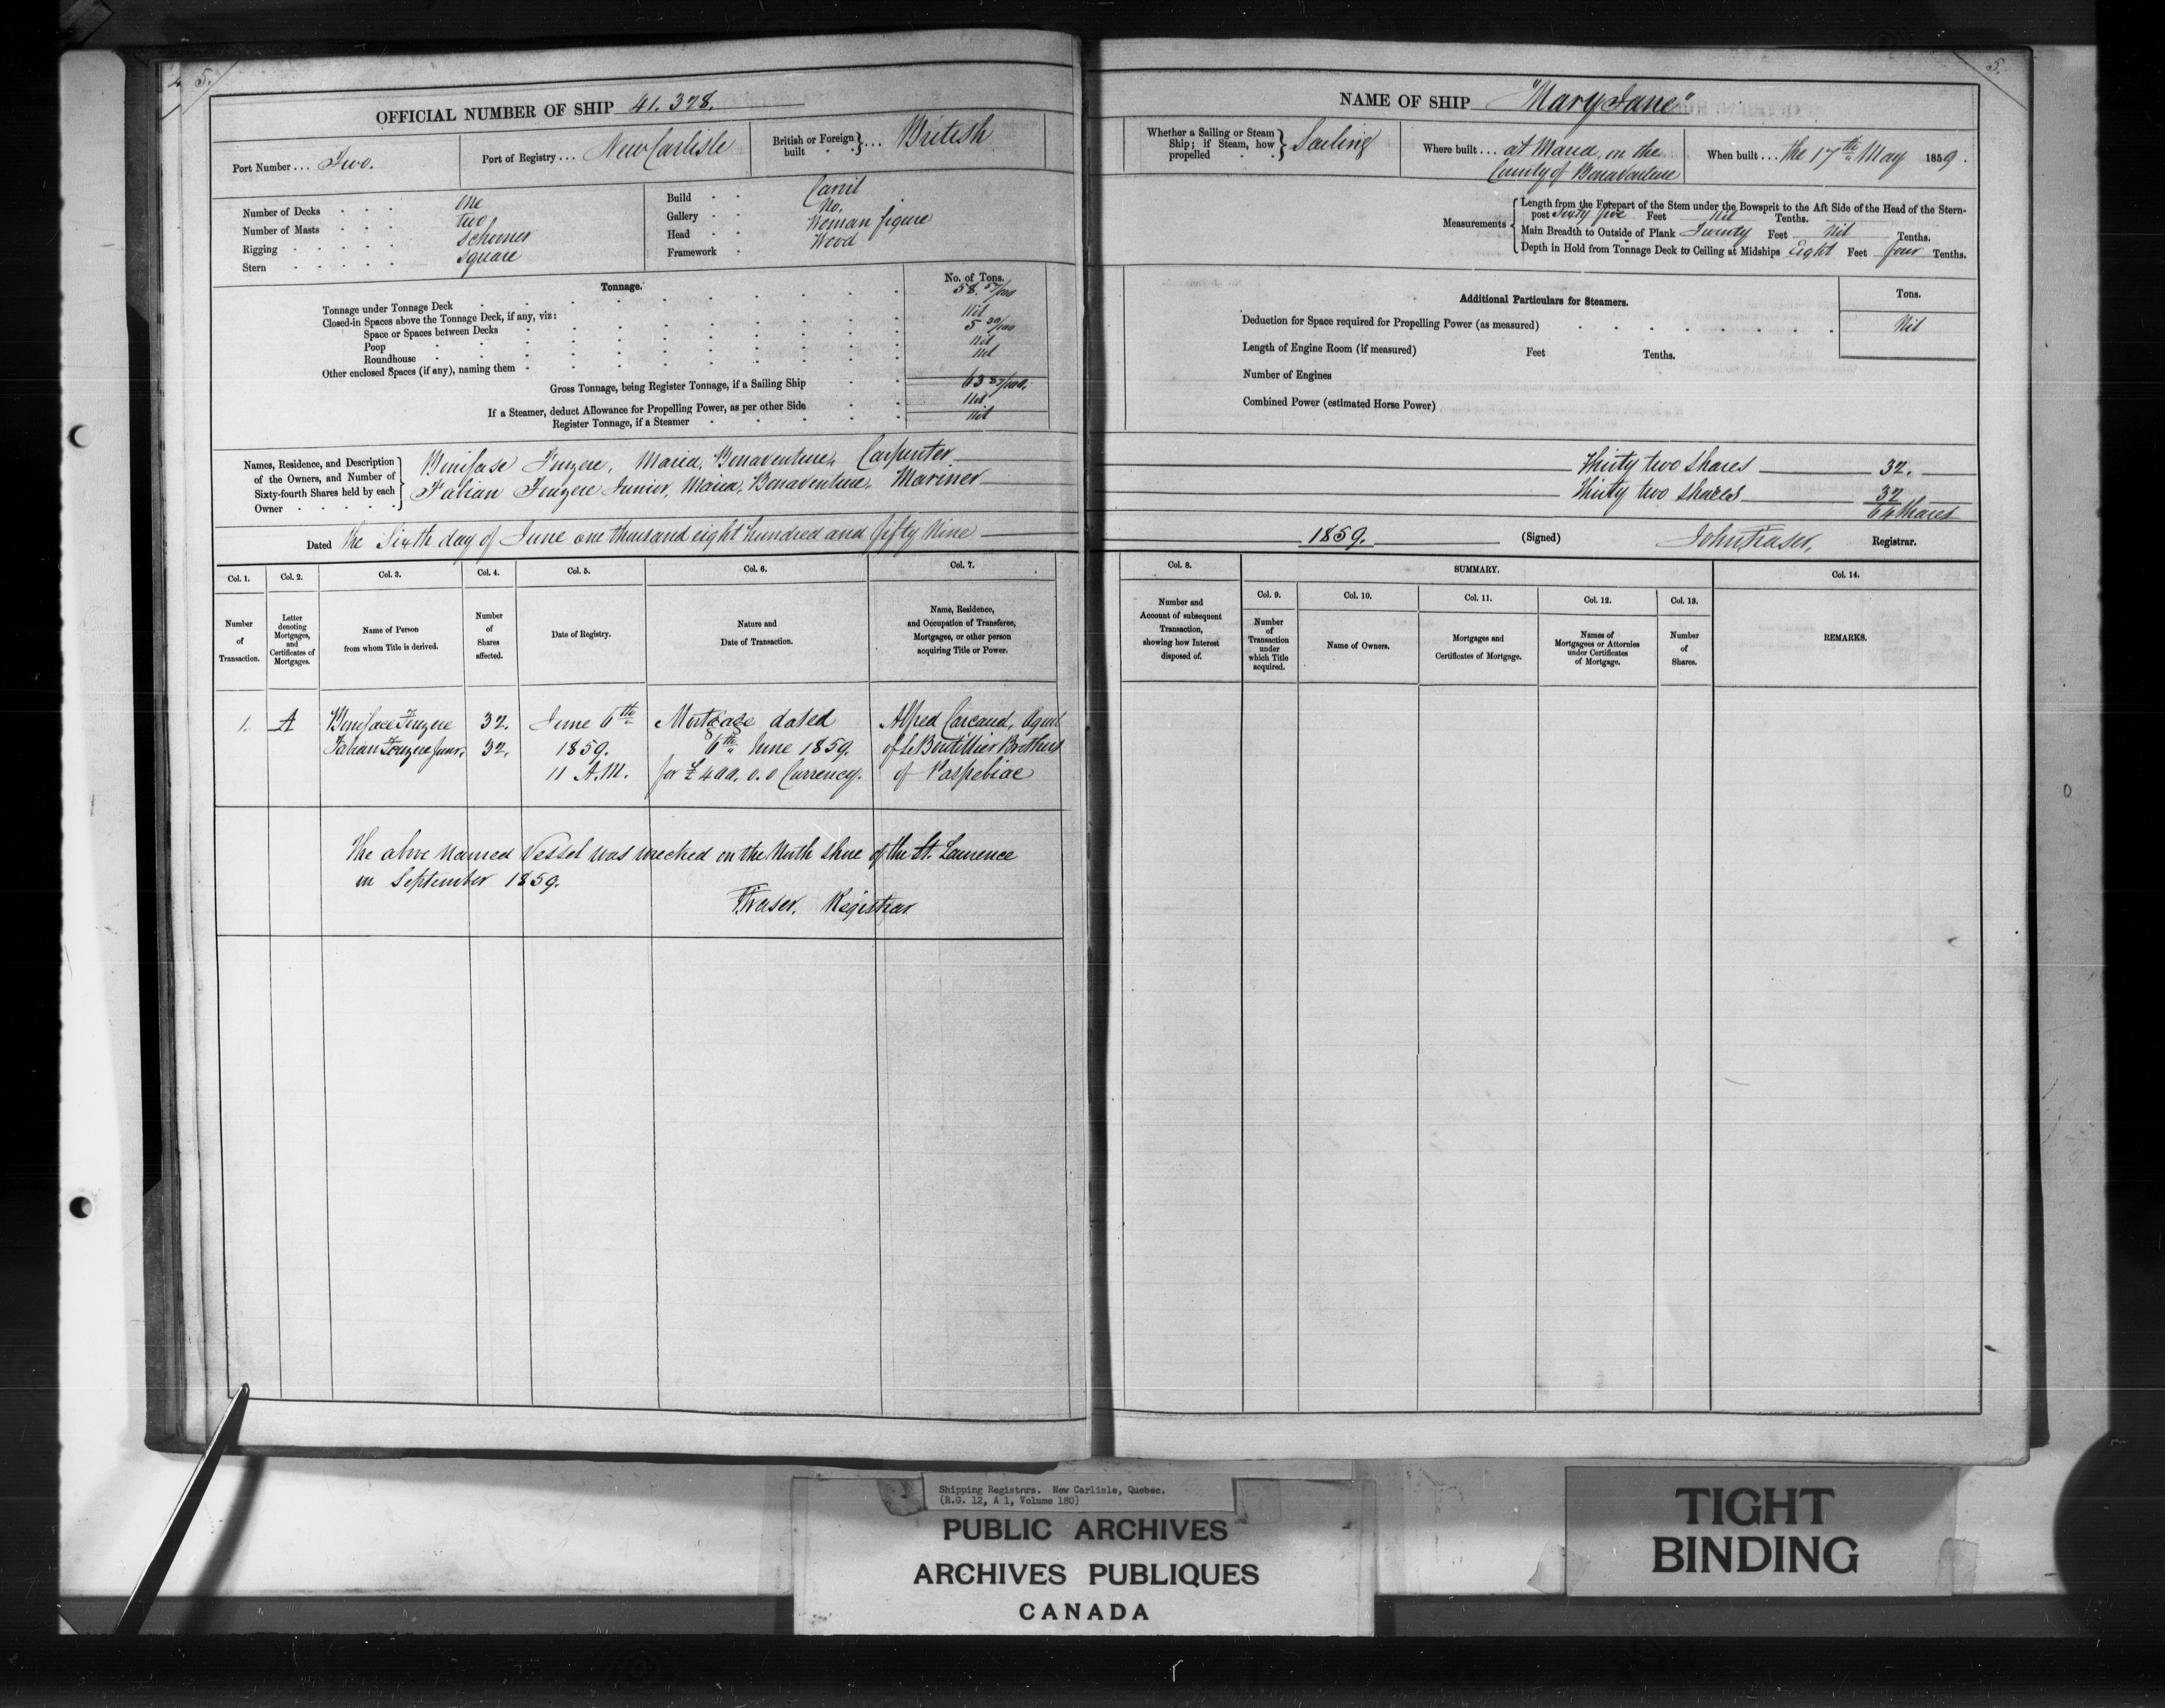 4 5.
OFFICIAL NUMBER OF SHIP 41.378.
Port Number ... Two.
Port of Registry ... New Carlisle
British or Foreign built } ... British
Number of Decks one
Number of Masts two
Rigging Schooner
Stern Square
Build Carvil
Gallery No.
Head Woman figure
Framework Wood
Tonnage.
No. of Tons.
Tonnage under Tonnage Deck 58. 57/100
Closed-in Spaces above the Tonnage Deck, if any, viz:
Space or Spaces between Decks Nil
Poop 5 30/100
Roundhouse Nil
Other enclosed Spaces (if any), naming them Nil
Gross Tonnage, being Register Tonnage, if a Sailing Ship 63 87/100.
If a Steamer, deduct Allowance for Propelling Power, as per other Side Nil
Register Tonnage, if a Steamer Nil
Names, Residence, and Description of the Owners, and Number of Sixty-fourth Shares held by each Owner
Boniface Maria, Bonaventure, Carpenter
Fabian Junior, Maria, Bonaventure, Mariner
Dated the Sixth day of June one thousand eight hundred and fifty Nine
Col. 1. Col. 2. Col. 3. Col. 4. Col. 5. Col. 6. Col. 7.
Number of Transaction.
Letter denoting Mortgages, and Certificates of Mortgages.
Name of Person from whom Title is derived.
Number of Shares affected.
Date of Registry.
Nature and Date of Transaction.
Name, Residence, and Occupation of Transferee, Mortgagee, or other person acquiring Title or Power.
1. A Boniface 32. June 6th Mortgage dated Alfred Carcaud, Agent
Fabian Junr. 32. 1859. 6th June 1859. of Le Boutillier Brothers
11 A.M. for £400.0.0 Currency. of Paspebiac
The above Named Vessel was wrecked on the North Shore of the St. Laurence
in September 1859.
Fraser. Registrar
5.
NAME OF SHIP "Mary Jane"
Whether a Sailing or Steam Ship; if Steam, how propelled } Sailing
Where built ... at Maria, on the County of Bonaventure
When built ... the 17th May 1859.
Measurements
Length from the Forepart of the Stem under the Bowsprit to the Aft Side of the Head of the Stern-
post Sixty five Feet Nil Tenths.
Main Breadth to Outside of Plank Twenty Feet Nil Tenths.
Depth in Hold from Tonnage Deck to Ceiling at Midships Eight Feet four Tenths.
Additional Particulars for Steamers.
Tons.
Deduction for Space required for Propelling Power (as measured) Nil
Length of Engine Room (if measured) Feet Tenths.
Number of Engines
Combined Power (estimated Horse Power)
Thirty two shares 32.
Thirty two shares 32
64 Shares
1859. (Signed) John Fraser, Registrar.
Col. 8. SUMMARY. Col. 14.
Col. 9. Col. 10. Col. 11. Col. 12. Col. 13.
Number and Account of subsequent Transaction, showing how Interest disposed of.
Number of Transaction under which Title acquired.
Name of Owners.
Mortgages and Certificates of Mortgage.
Names of Mortgagees or Attornies under Certificates of Mortgage.
Number of Shares.
REMARKS.
Shipping Registers. New Carlisle, Quebec.
(R.G. 12, A 1, Volume 180)
PUBLIC ARCHIVES
ARCHIVES PUBLIQUES
CANADA
TIGHT
BINDING